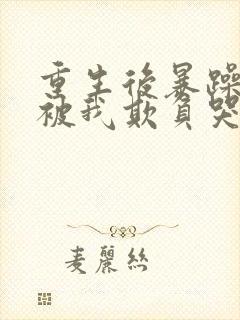 重生後暴躁
被我欺負哭
麦麗絲